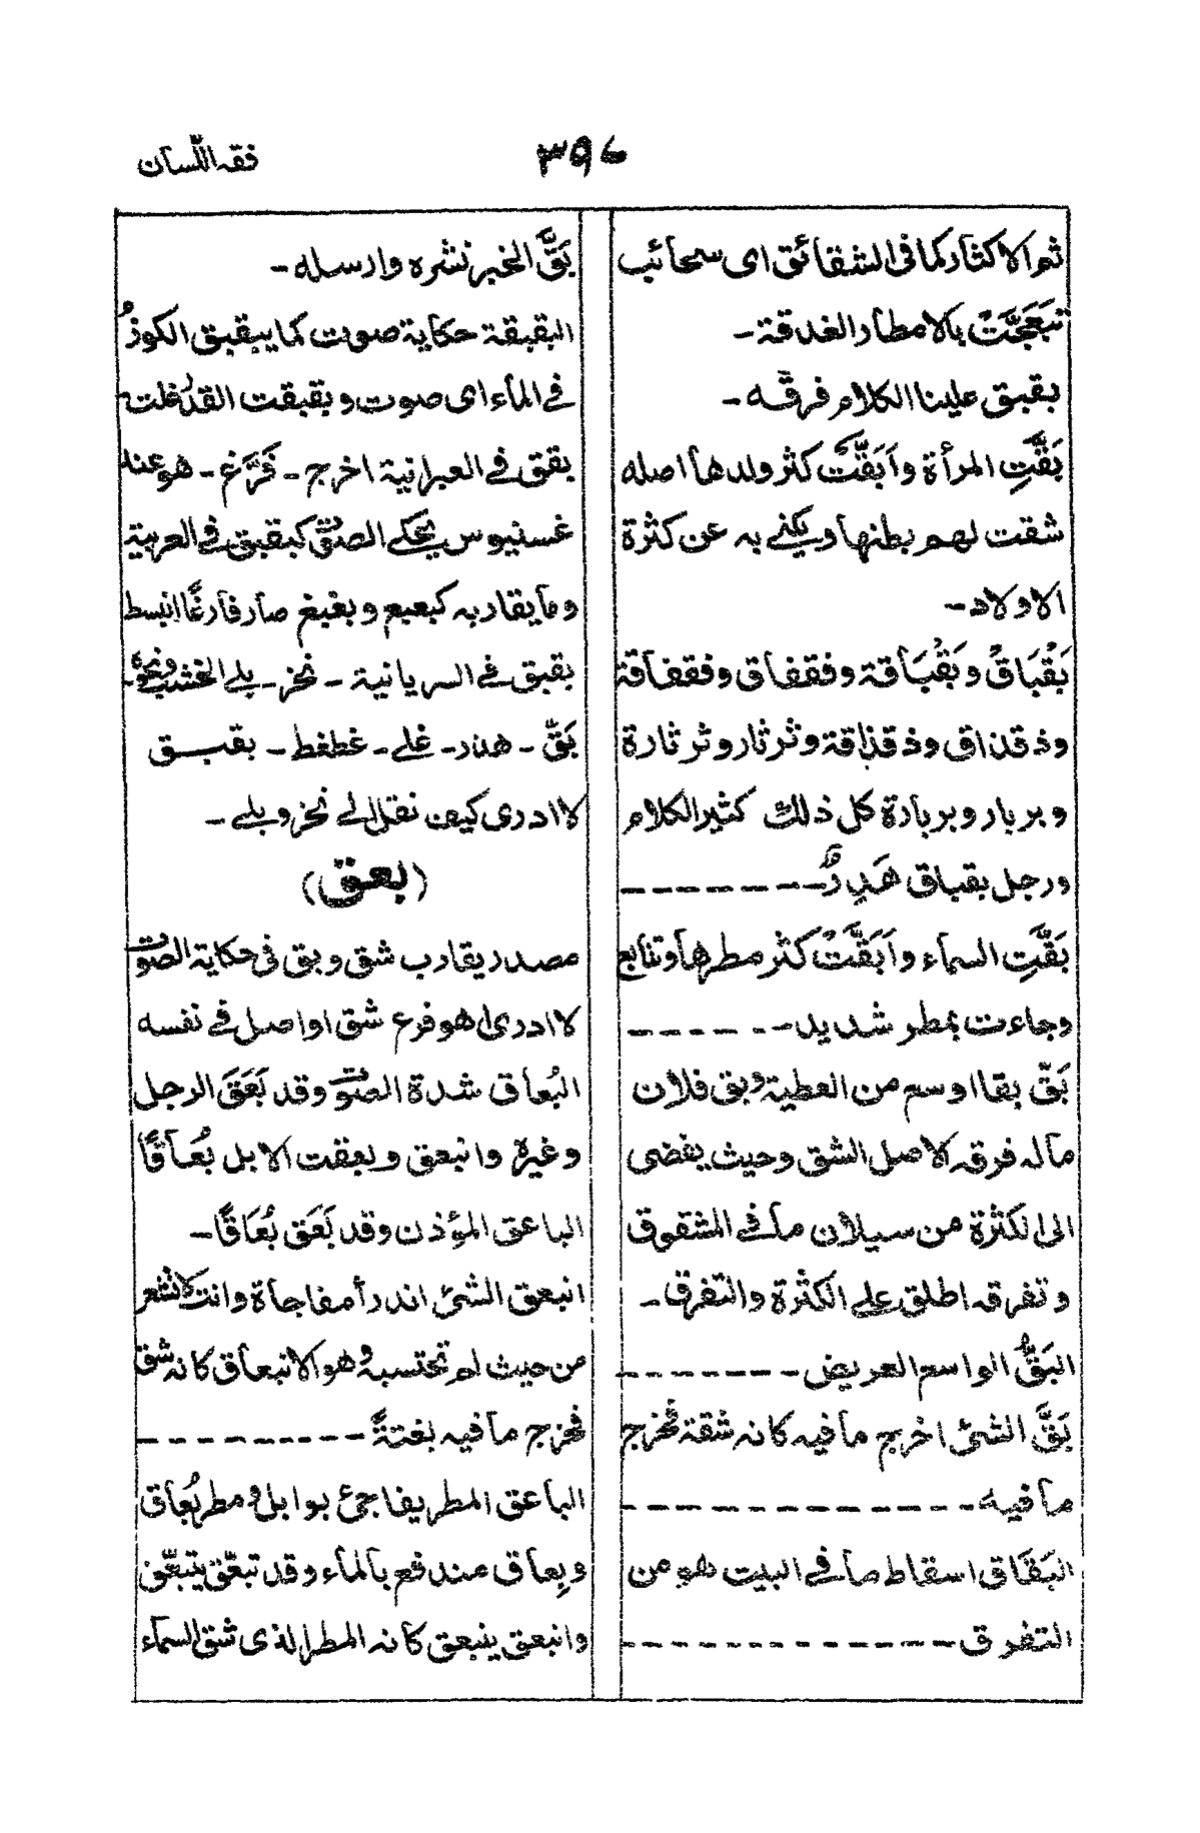 فقه اللّسان
٣٩٦
ثم الاكثار كما فى الشقائق اى سحائب
تبعجّت بالامطار الغدقة ـ
بقبق علينا الكلام فرقّه ـ
بقّتِ المرأة وأبَقَّت كثر ولدها اصله
شقت لهم بطنها ويكنے به عن كثرة
الاولاد ـ
بَقْبَاقٌ وبَقْبَاقة وفقفاق وفقفاقة
وذقذاق وذقذاقة وثرثار وثرثارة
وبربار وبربارة كل ذلك كثير الكلام
ورجل بقباق هَذِرٌ ـ
بَقَّتِ السماء واَبَقَّتْ كثر مطرها وتتابع
وجاءت بمطر شديد ـ
بَقّ بقا اوسع من العطية وبق فلان
ماله فرقه لاصل الشق وحيث يفضى
الى الكثرة من سيلان ما فے المشقوق
وتفرقه اطلق علے الكثرة والتفرق ـ
البَقُّ الواسع العريض ـ
بَقَّ الشئ اخرج ما فيه كانه شقة فخرج
ما فيه ـ
البَقَاق اسقاط ما فے البيت هو من
التفرق ـ
بَقَّ الخبر نشره وارسله ـ
البقبقة حكاية صوت كما يبقبق الكوزُ
فے الماء اى صوت وبقبقت القدر غلت
بقق فے العبرانية اخرج ـ فَرَّغ ـ هو عند
غسنيوس يحكے الصوت كبقبق فے العربية
وما يقاربه كبعبع وبغبغ صار فارغًا انبسط
بقبق فے السريانية ـ نخر ـ بلے الخشب ونحوه ـ
بَقّ ـ هذر ـ غلے ـ غطغط ـ بقبق
لا ادرى كيف نقل الے نخر وبلے ـ
(بعق)
مصدر يقارب شق وبق فى حكاية الصوت
لا ادرى اهو فرع شق او اصل فے نفسه
البُعاق شدة الصوت وقد بَعَقَ الرجل
وغيره وانبعق وبعقت الابل بُعَاقًا
الباعق المؤذن وقد بَعَق بُعَاقًا ـ
انبعق الشئ اندرأ مفاجأة وانت لا تشعر
من حيث لم تحتسبه وهو الانبعاق كانه شق
فخرج ما فيه بغتةً ـ
الباعق المطر يفاجئ بوابل و مطر بُعاق
وبِعاق مندفع بالماء وقد تبعّق يتبعّق
وانبعق ينبعق كانه المطر الذى شق السماء